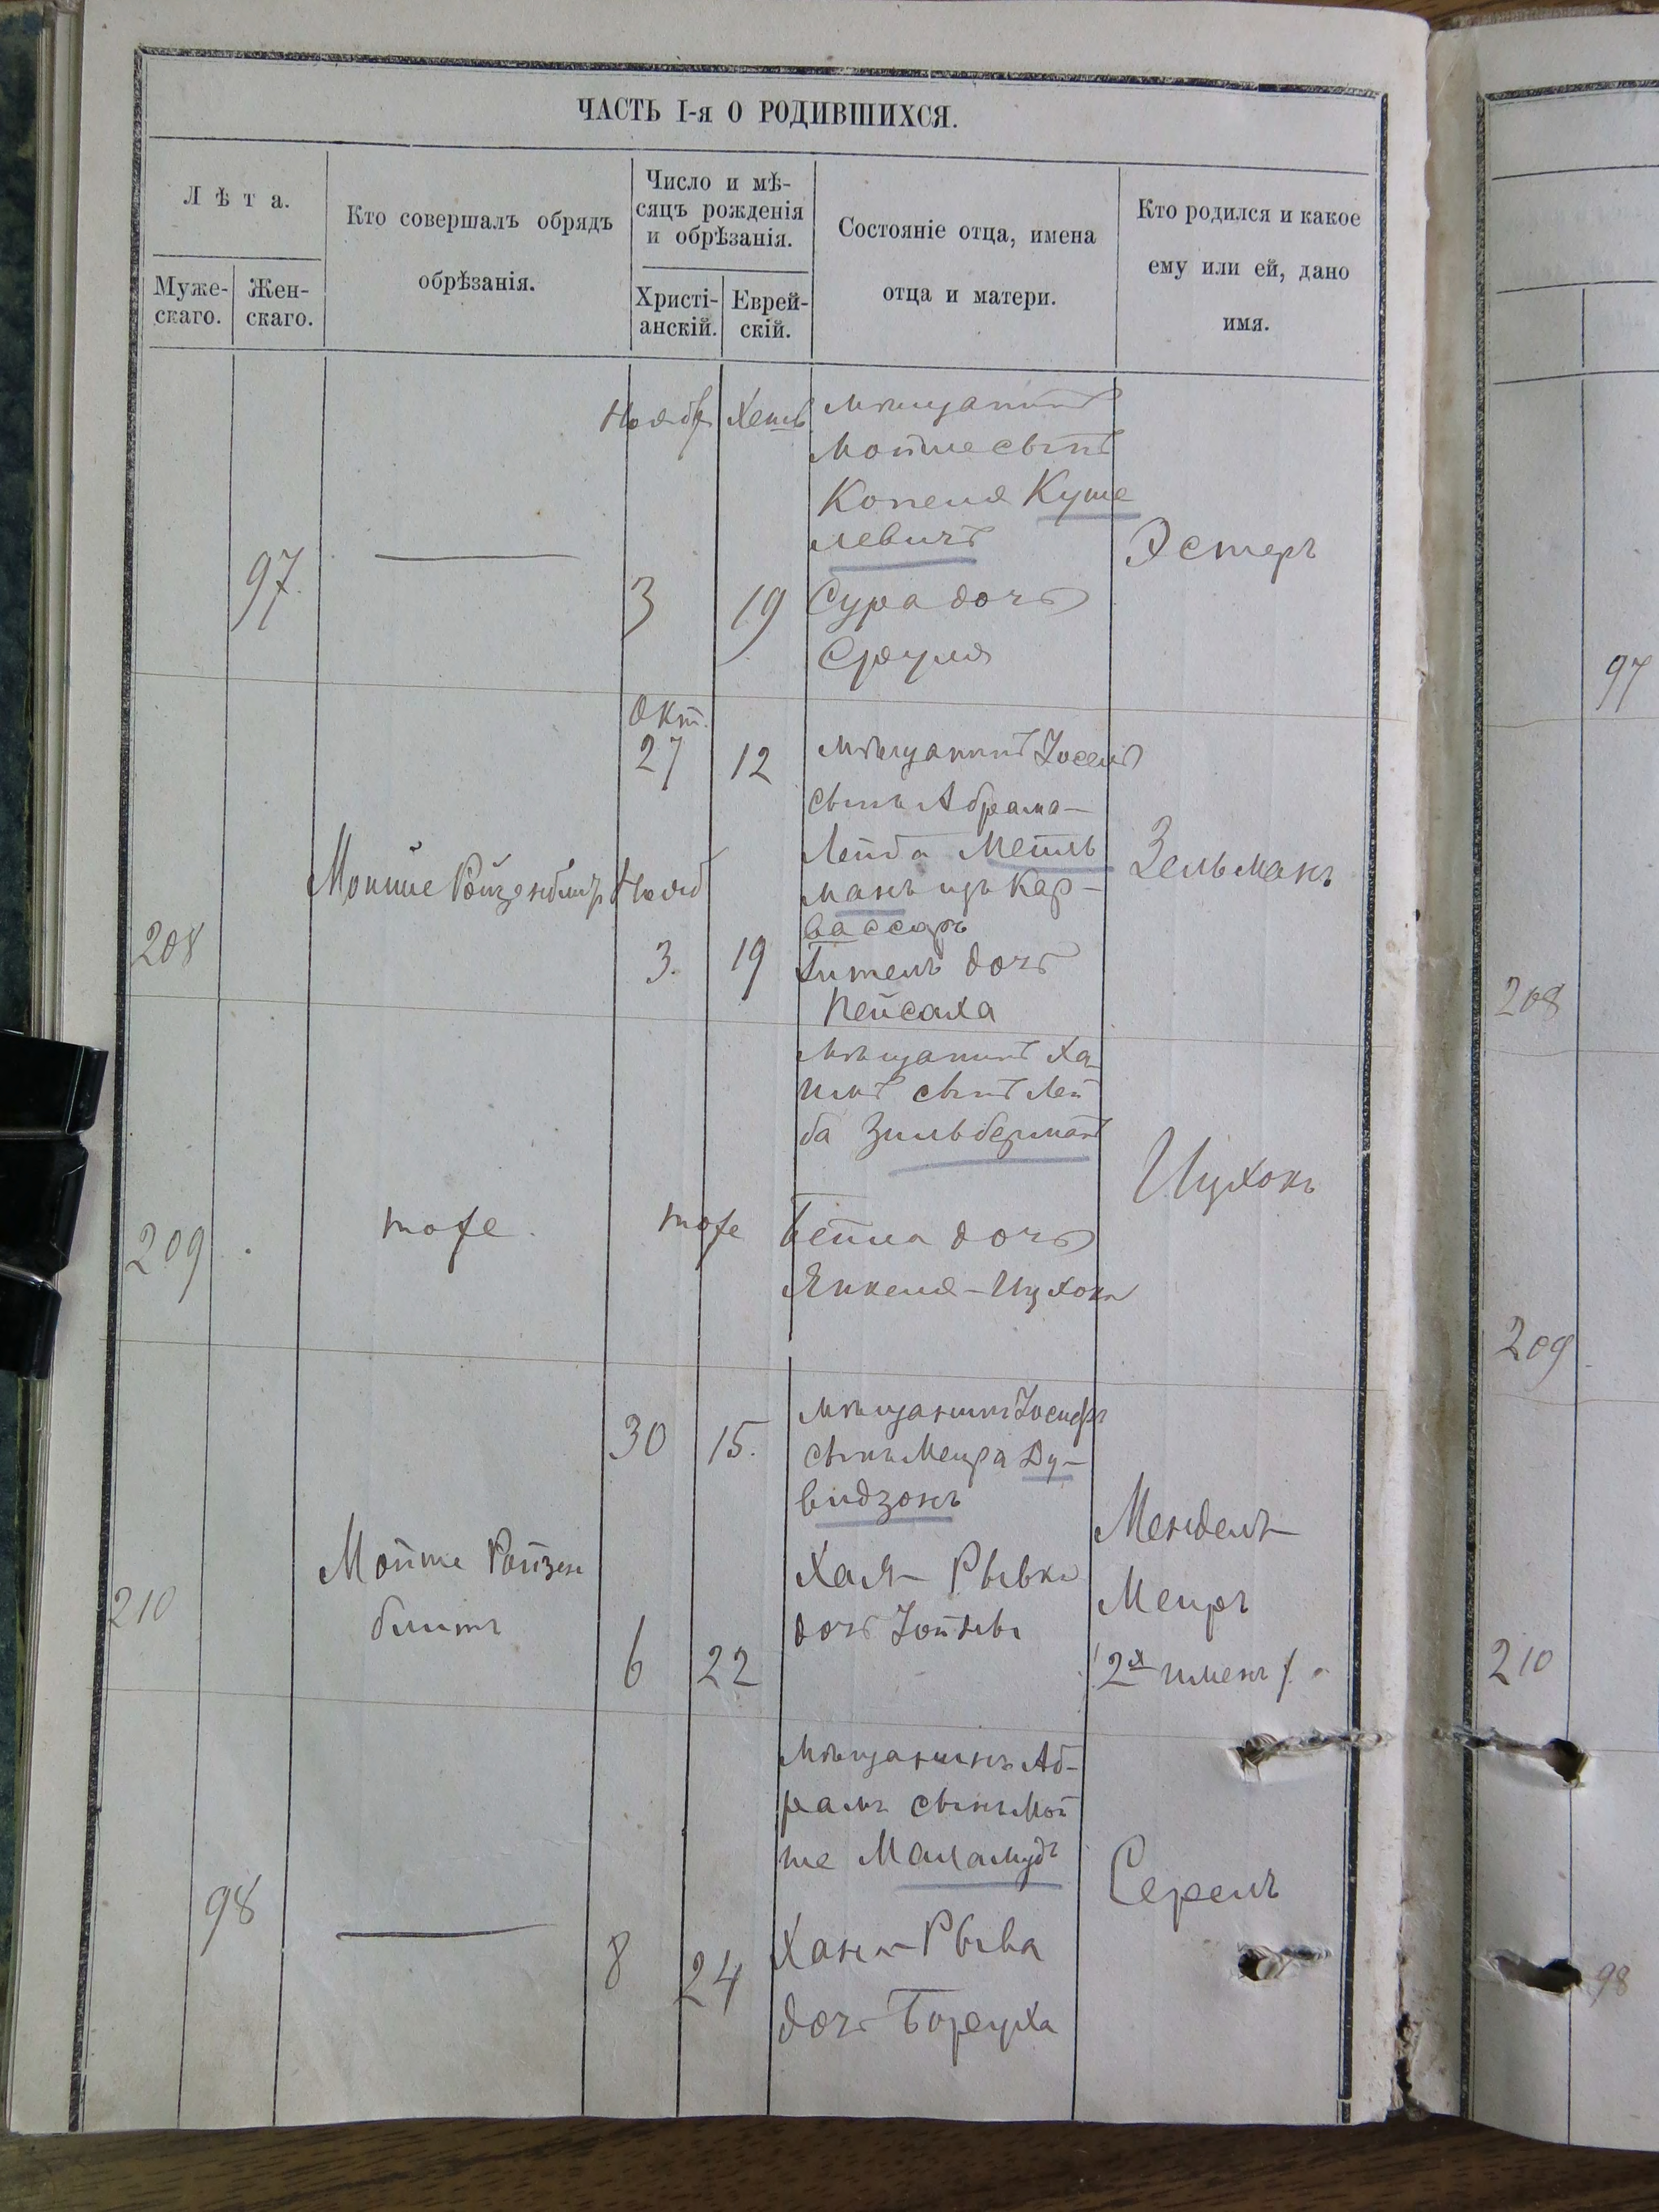 ЧАСТЬ I-я О РОДИВШИХСЯ.
Лѣта.
Муже-
скаго.
Жен-
скаго.
Кто совершалъ обрядъ
обрѣзанія.
Число и мѣ-
сяцъ рожденія
и обрѣзанія.
Христі-
анскій.
Еврей-
скій.
Состояніе отца, имена
отца и матери.
Кто родился и какое
ему или ей, дано
имя.
97.
Ноябр
Хешв
3
19
мѣщанинъ
Мойше сынъ
Копеля Куше
левичъ
Сура дочь
Сруля
Эстеръ
97
208
Мойше Ройзенблитъ
Окт.
27
12
Нояб
3.
19
мѣщанинъ Іосель
сынъ Абрама-
Лейба Мейль
манъ изъ Кар-
вассаръ
Гитель дочь
Пейсаха
Зельманъ
208
209
тоже
тоже
мѣщанинъ Ха
имъ сынъ Лей
ба Зильберманъ
Бейла дочь
Янкеля-Ицхока
Ицхокъ
209
210
Мойше Ройзен
блитъ
30
15.
6
22
мѣщанинъ Іосифъ
сынъ Меира Ду-
видзонъ
Хая-Рывка
дочь
Мендель-
Меиръ
/2х именъ/.
210
98
8
24
мѣщанинъ Аб-
рамъ сынъ Мой
ше Маламудъ
Хана-Рыва
дочь Боруха
Серель
98